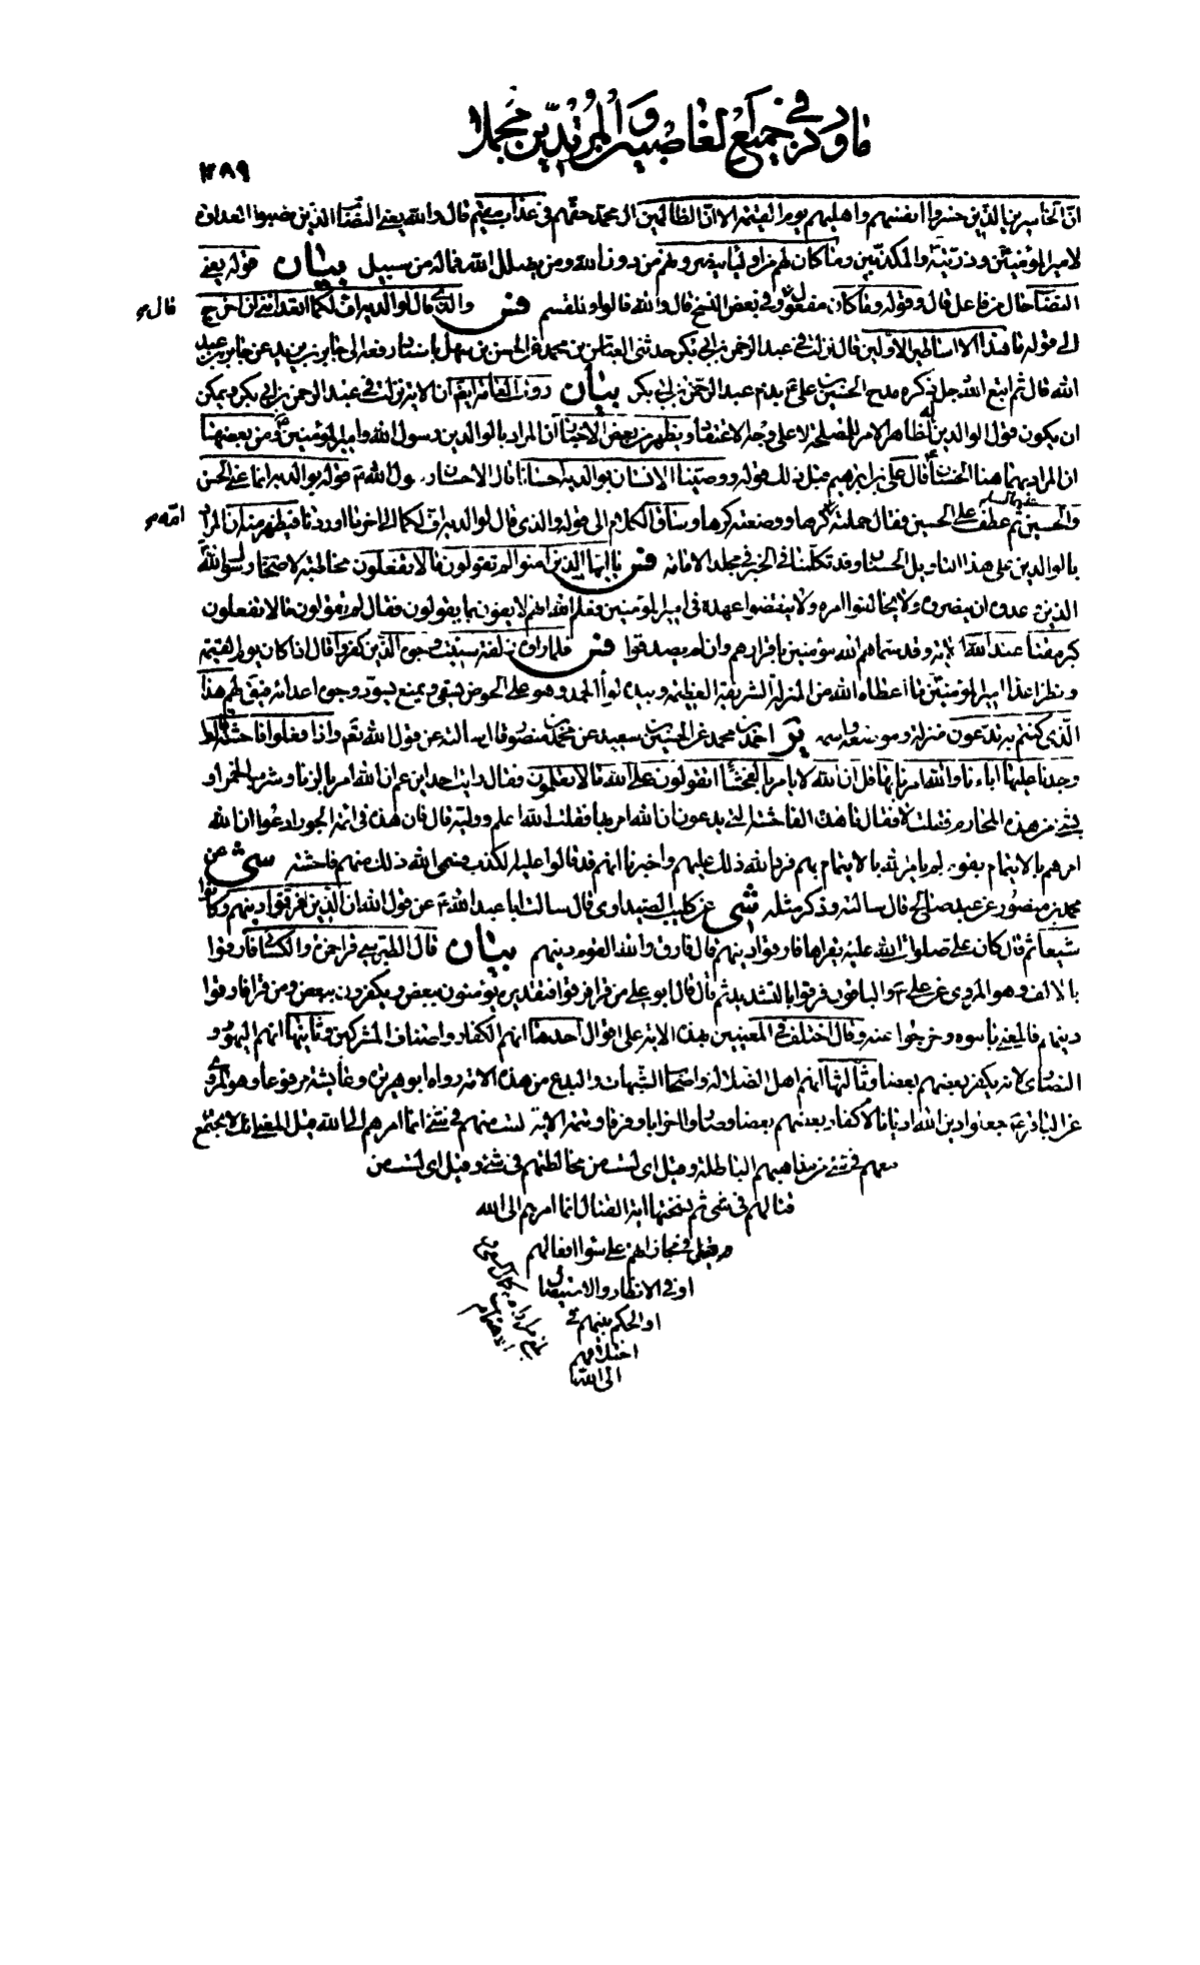 ما ورد في جميع الغاصبين والمرتدين مجملا
٣٨٩
ان الخاسرين الذين خسروا انفسهم واهليهم يوم القيمة الا ان الظالمين ال محمد حقهم في عذاب مقيم قال والله يعني النصاب الذين نصبوا العداوة
لامير المؤمنين وذريته والمكذبين وما كان لهم من اولياء ينصرونهم من دون الله ومن يضلل الله فما له من سبيل بيان قوله يعني
النصاب حال من فاعل قال وقوله وما كان مفعوله وفي بعض النسخ قال والله قالوا ونلقسم فس والذي قال لوالديه اف لكما اتعدانني ان اخرج
قال
الى قوله ما هذا الا اساطير الاولين قال نزلت في عبد الرحمن بن ابي بكر حدثني العباس بن محمد عن الحسن بن سهل باسناد رفعه الى جابر بن يزيد عن جابر بن عبد
الله قال ثم اتبع الله جل ذكره مدح الحسين بن علي ع بذم عبد الرحمن بن ابي بكر بيان روت العامة ايضا ان الاية نزلت في عبد الرحمن بن ابي بكر ويمكن
ان يكون قول الوالدين له ظاهر الامر للمصلحة لا على وجه الاعتقاد ويظهر من بعض الاخبار ان المراد بالوالدين رسول الله وامير المؤمنين ومن بعضها
ان المراد بهما هنا الحسنان قال علي بن ابرهيم قبل ذلك قوله ووصينا الانسان بوالديه احسانا قال الاحسان رسول الله ص قوله بوالديه انما عنى الحسن
والحسين عليهما السلم ثم عطف على الحسين فقال حملته امه كرها ووضعته كرها وساق الكلام الى قوله والذي قال لوالديه اف لكما الى اخر ما اوردنا فيظهر منه ان المراد
بالوالدين على هذا التاويل الحسنان وقد تكلمنا في الخبر في مجلد الامامة فس يا ايها الذين امنوا لم تقولون ما لا تفعلون مخاطبة لاصحاب رسول الله
الذين وعدوه ان ينصروه ولا يخالفوا امره ولا ينقضوا عهده في امير المؤمنين فعلم الله انهم لا يفون بما يقولون فقال لم تقولون ما لا تفعلون
كبر مقتا عند الله الاية وقد سماهم الله مؤمنين باقرارهم وان لم يصدقوا فس فلما راوه زلفة سيئت وجوه الذين كفروا قال اذا كان يوم القيمة
ونظر اعداء امير المؤمنين ما اعطاه الله من المنزلة الشريفة العظيمة وبيده لواء الحمد وهو على الحوض يسقي ويمنع يسود وجوه اعدائه فيقال لهم هذا
الذي كنتم به تدعون منزلته وموضعه واسمه ير احمد بن محمد عن الحسين بن سعيد عن محمد بن منصور قال سالته عن قول الله تع واذا فعلوا فاحشة قالوا
وجدنا عليها اباءنا والله امرنا بها قل ان الله لا يامر بالفحشاء اتقولون على الله ما لا تعلمون فقال رايت احدا يزعم ان الله امر بالزنا وشرب الخمر او
بشيء من هذه المحارم فقلت لا فقال ما هذه الفاحشة التي يدعون ان الله امر بها فقلت الله اعلم ووليه قال فان هذه في ائمة الجور ادعوا ان الله
امرهم بالايتمام بقوم لم يامر الله بالايتمام بهم فرد الله ذلك عليهم واخبرنا انهم قد قالوا عليه الكذب فسمى الله ذلك منهم فاحشة شي عن
محمد بن منصور عن عبد صالح قال سالته وذكر مثله شي عن كليب الصيداوي قال سالت ابا عبد الله ع عن قول الله ان الذين فرقوا دينهم وكانوا
شيعا ثم قال كان علي صلوات الله عليه يقراها فارقوا دينهم قال فارق والله القوم دينهم بيان قال الطبرسي قرا حمزة والكسائي فارقوا
بالالف وهو المروي عن علي ع والباقون فرقوا بالتشديد ثم قال قال ابو علي من قرا فرقوا فتقديره يؤمنون ببعض ويكفرون ببعض ومن قرا فارقوا
دينهم فالمعنى باينوه وخرجوا عنه وقال اختلف في المعنيين بهذه الاية على اقوال احدها انهم الكفار واصناف المشركين وثانيها انهم اليهود و
النصارى لانه يكفر بعضهم بعضا وثالثها انهم اهل الضلالة واصحاب الشبهات والبدع من هذه الامة رواه ابو هريرة وعايشة مرفوعا وهو المروي
عن الباقر ع جعلوا دين الله اديانا لاكفار بعضهم بعضا وصاروا احزابا وفرقا وتتمة الاية لست منهم في شئ انما امرهم الى الله قيل المعنى انك لا يجتمع
معهم في شئ من مذاهبهم الباطلة وقيل اي لست من مخالطتهم في شئ وقيل اي لست من
قتالهم في شئ ثم نسختها اية القتال انما امرهم الى الله
في مجازاتهم على سوء افعالهم
او في الانظار والاستيصال
او الحكم بينهم في
اختلافهم
الى الله